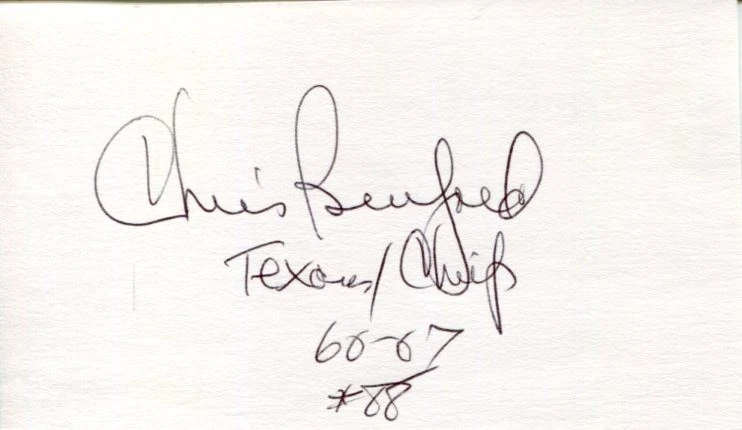 Chris Burford
Texans/Chiefs
60-67
#88